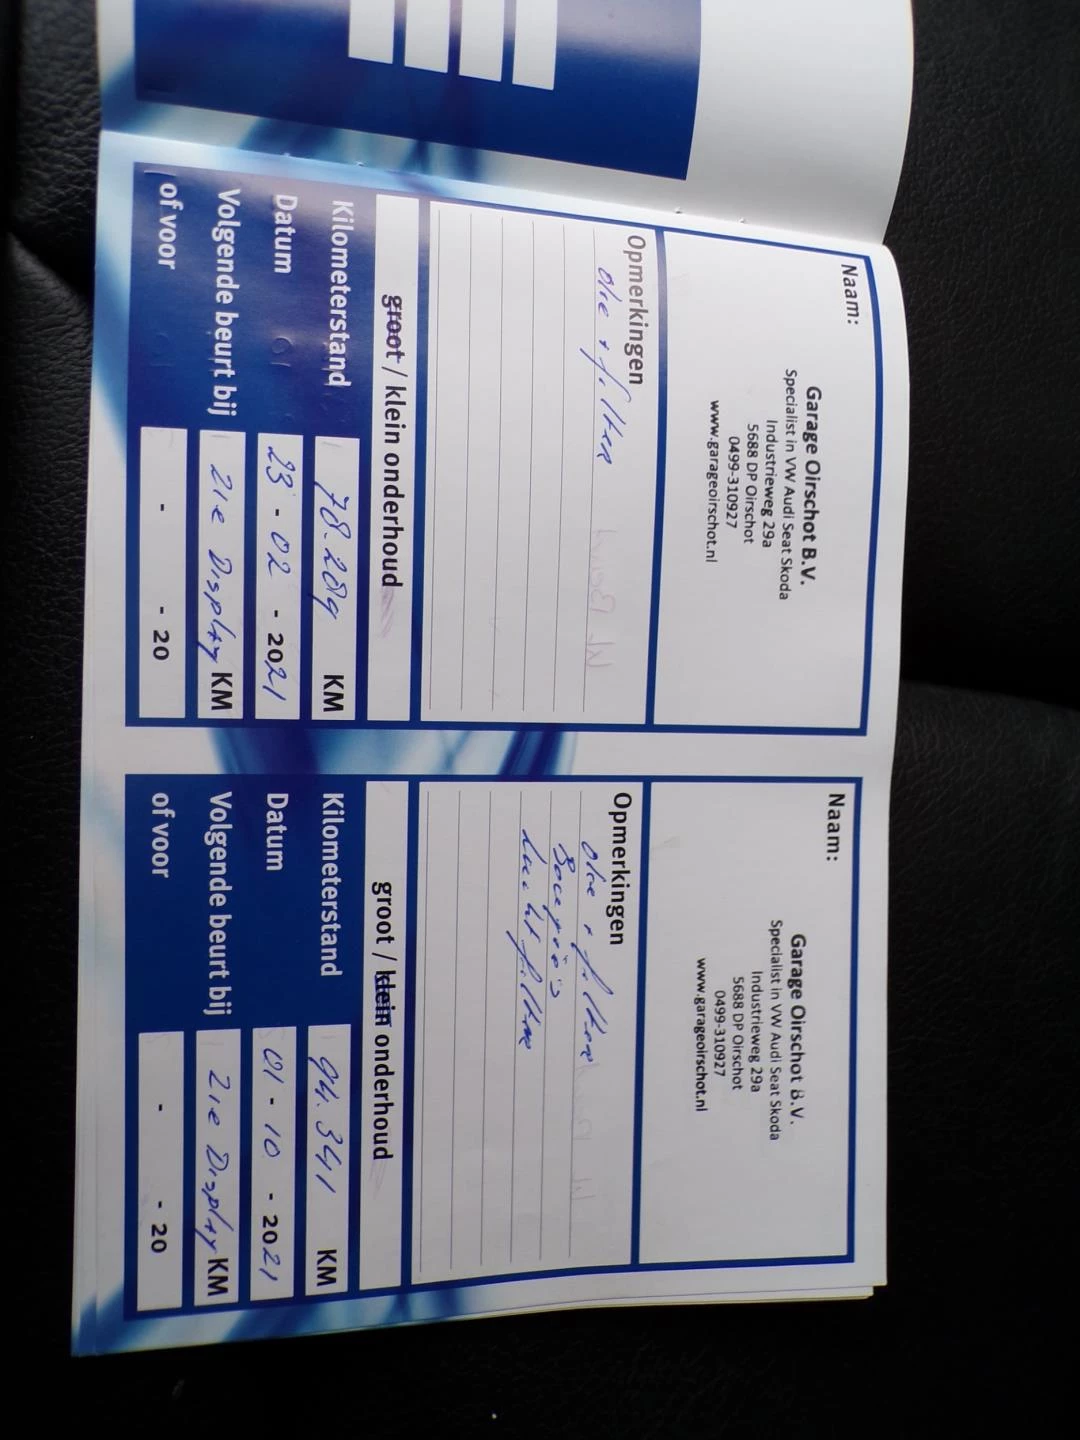 Naam:
Garage Oirschot B.V.
Specialist in VW Audi Seat Skoda
Industrieweg 29a
5688 DP Oirschot
0499-310927
www.garageoirschot.nl
Opmerkingen
olie + filter
groot / klein onderhoud
Kilometerstand 78.289 KM
Datum 23 - 02 - 2021
Volgende beurt bij zie Display KM
of voor - - 20
Naam:
Garage Oirschot B.V.
Specialist in VW Audi Seat Skoda
Industrieweg 29a
5688 DP Oirschot
0499-310927
www.garageoirschot.nl
Opmerkingen
olie + filter
Bougie's
Luchtfilter
groot / klein onderhoud
Kilometerstand 94.341 KM
Datum 01 - 10 - 2021
Volgende beurt bij zie Display KM
of voor - - 20